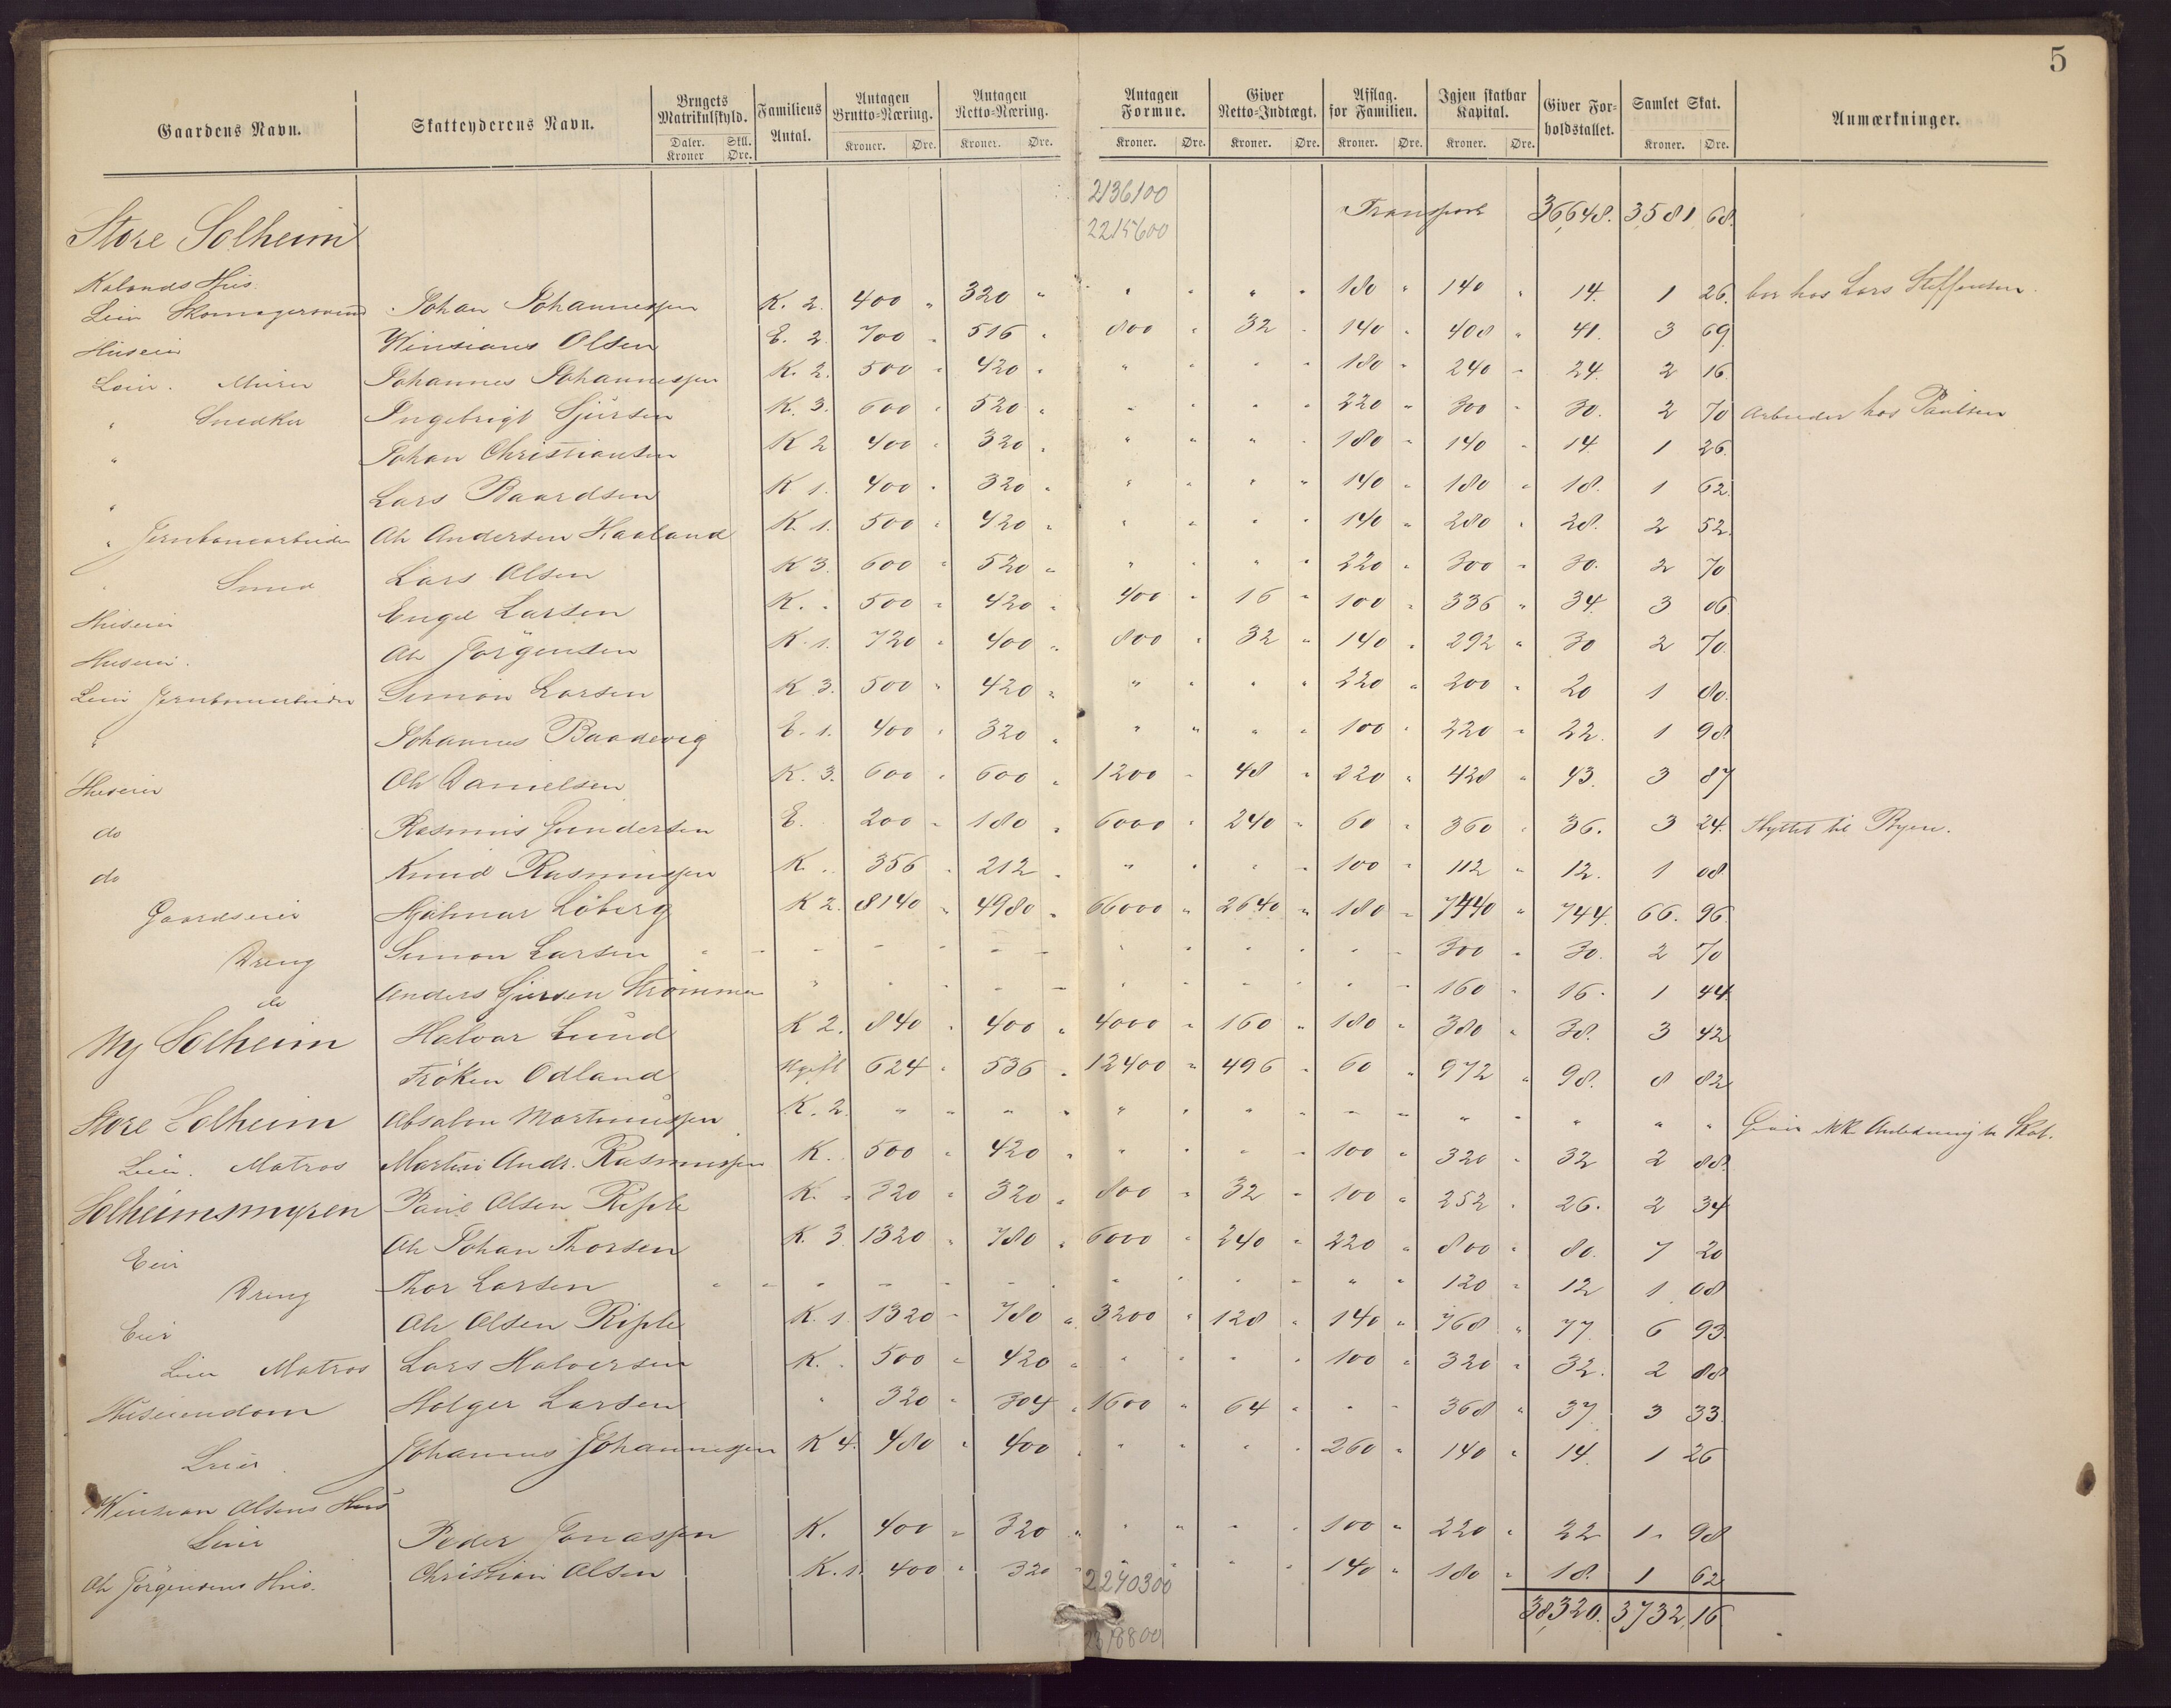 5
Gaardens Navn. Skatteyderens Navn. Brugets Matrikulskyld. Daler. Kroner Skll. Øre. Familiens Antal. Antagen Brutto-Næring. Kroner. Øre. Antagen Netto-Næring. Kroner. Øre. Antagen Formue. Kroner. Øre. Giver Netto-Indtægt. Kroner. Øre. Afslag. for Familien. Kroner. Øre. Igjen skatbar Kapital. Kroner. Øre. Giver Forholdstallet. Samlet Skat. Kroner. Øre. Anmærkninger.
2136100
Store Solheim 2215600 Transport 36,648. 3581 68.
Kalands Hus.
Leier Skomagersvend Johan Johannessen K. 2. 400 " 320 " " " " " 180 " 140 " 14. 1 26. bor hos Lars Steffensen.
Huseier Winsians Olsen E. 2. 700 " 516 " 800 " 32 " 140 " 408 " 41. 3 69.
Leier. Murer Johannes Johannessen K. 2. 500 " 420 " " " " " 180 " 240 " 24. 2 16.
" Snedker Ingebrigt Sjursen K. 3. 600 " 520 " " " " " 220 " 300 " 30. 2 70 Arbeider hos Paulsen
" Johan Christiansen K 2 400 " 320 " " " " " 180 " 140 " 14. 1 26.
" Lars Baardsen K 1. 400 " 320 " " " " " 140 " 180 " 18. 1 62.
" Jernbanearbeider Ole Andersen Haaland K. 1. 500 " 420 " " " " " 140 " 280 " 28. 2 52.
" Smed Lars Olsen K 3. 600 " 520 " " " " " 220 " 300 " 30. 2 70
Huseier Engel Larsen K. " 500 " 420 " 400 " 16 " 100 " 336 " 34. 3 06.
Huseier. Ole Jörgensen K. 1. 720 " 400 " 800 " 32 " 140 " 292 " 30 2 70.
Leier Jernbanearbeider Simon Larsen K 3. 500 " 420 " " " " " 220 " 200 " 20 1 80.
" Johannes Baadevig E. 1. 400 " 320 " " " " " 100 " 220 " 22. 1 98.
Huseier Ole Danielsen K. 3. 600 " 600 " 1200 " 48 " 220 " 428 " 43. 3 87
do Rasmus Gundersen E. 200 " 180 " 6000 " 240 " 60 " 360 " 36. 3 24. Flyttet til Byen.
do Knud Rasmussen K. " 356 " 212 " " " " " 100 " 112 " 12. 1 08.
Gaardseier Hjalmar Löberg K 2. 8140 " 4980 " 66000 " 2640 " 180 " 7440 " 744. 66. 96.
Dreng Simon Larsen " " " " " " " " " " " " " 300 " 30. 2 70
do Anders Sjursen Strömmen " " " " " " " " " " " 160 " 16. 1 44.
Ny Solheim Halvor Lund K 2. 840 " 400 " 4000 " 160 " 180 " 380 " 38. 3 42
Fröken Odland Ugift 624 " 536 " 12400 " 496 " 60 " 972 " 98. 8 82
Store Solheim Absalon Martinussen K. 2. " " " " " " " " " " " " " " " Giver ikke Anledning til Skat.
Leier. Matros Martin Andr. Rasmussen K. 500 " 420 " " " " " 100 " 320 " 32 2 88.
Solheimsmyren Paul Olsen Riple K. " 320 " 320 " 800 " 32 " 100 " 252 " 26. 2 34
Eier Ole Johan Thorsen K. 3 1320 " 780 " 6000 " 240 " 220 " 800 " 80. 7 20
Dreng Thor Larsen " " " " " " " " " " " " " 120 " 12 1 08
Eier Ole Olsen Riple K. 1. 1320 " 780 " 3200 " 128 " 140 " 768 " 77. 6 93
Leier Matros Lars Halversen K. " 500 " 420 " " " " " 100 " 320 " 32. 2 88
Huseiendom Holger Larsen " 320 " 304 " 1600 " 64 " " " 368 " 37. 3 33.
Leier. Johannes Johannessen K 4. 480 " 400 " " " " " 260 " 140 " 14. 1 26
Winsian Olsens Hus
Leier Peder Jonassen K. 400 " 320 " " " " " 100 " 220 " 22 1 " 98
Ole Jörgensens Hus. Christian Olsen K. 1. 400 " 320 " " " " " 140 " 180 " 18. 1 62
2240300
38,320. 3732,16